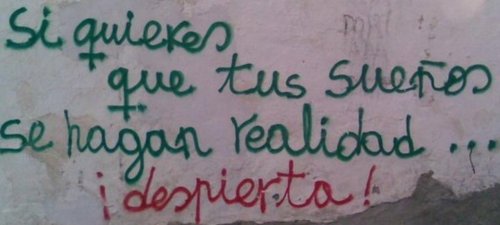 Si quieres
que tus sueños
se hagan realidad ...
¡despierta!